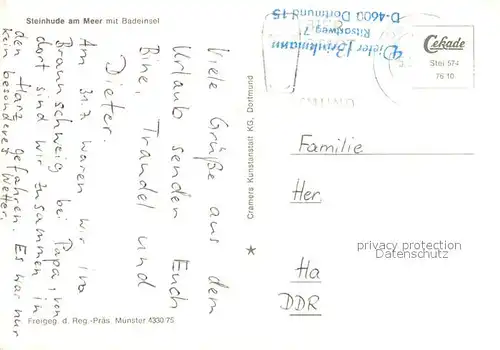 Steinhude am Meer mit Badeinsel
Viele Grüße aus dem
Urlaub senden Euch
Bine, Traudel und
Dieter.
Am 31.7 waren wir in
Braunschweig bei Papa, von
dort sind wir zusammen in
den Harz gefahren. Es war nur
kein besonderes Wetter.
Freigeg. d. Reg.-Präs. Münster 4330/75
Cramers Kunstanstalt KG, Dortmund
Dieter Brinkmann
Ritsagweg 7
D-4600 Dortmund 15
Cekade
Stei 574
76 10
Familie
Her.
privacy protection
Datenschutz
Ha
DDR